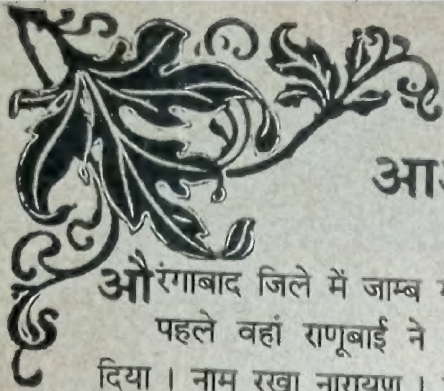 आ
औरंगाबाद जिले में जाम्ब
पहले वहां राणूबाई ने
दिया । नाम रखा नारायण ।